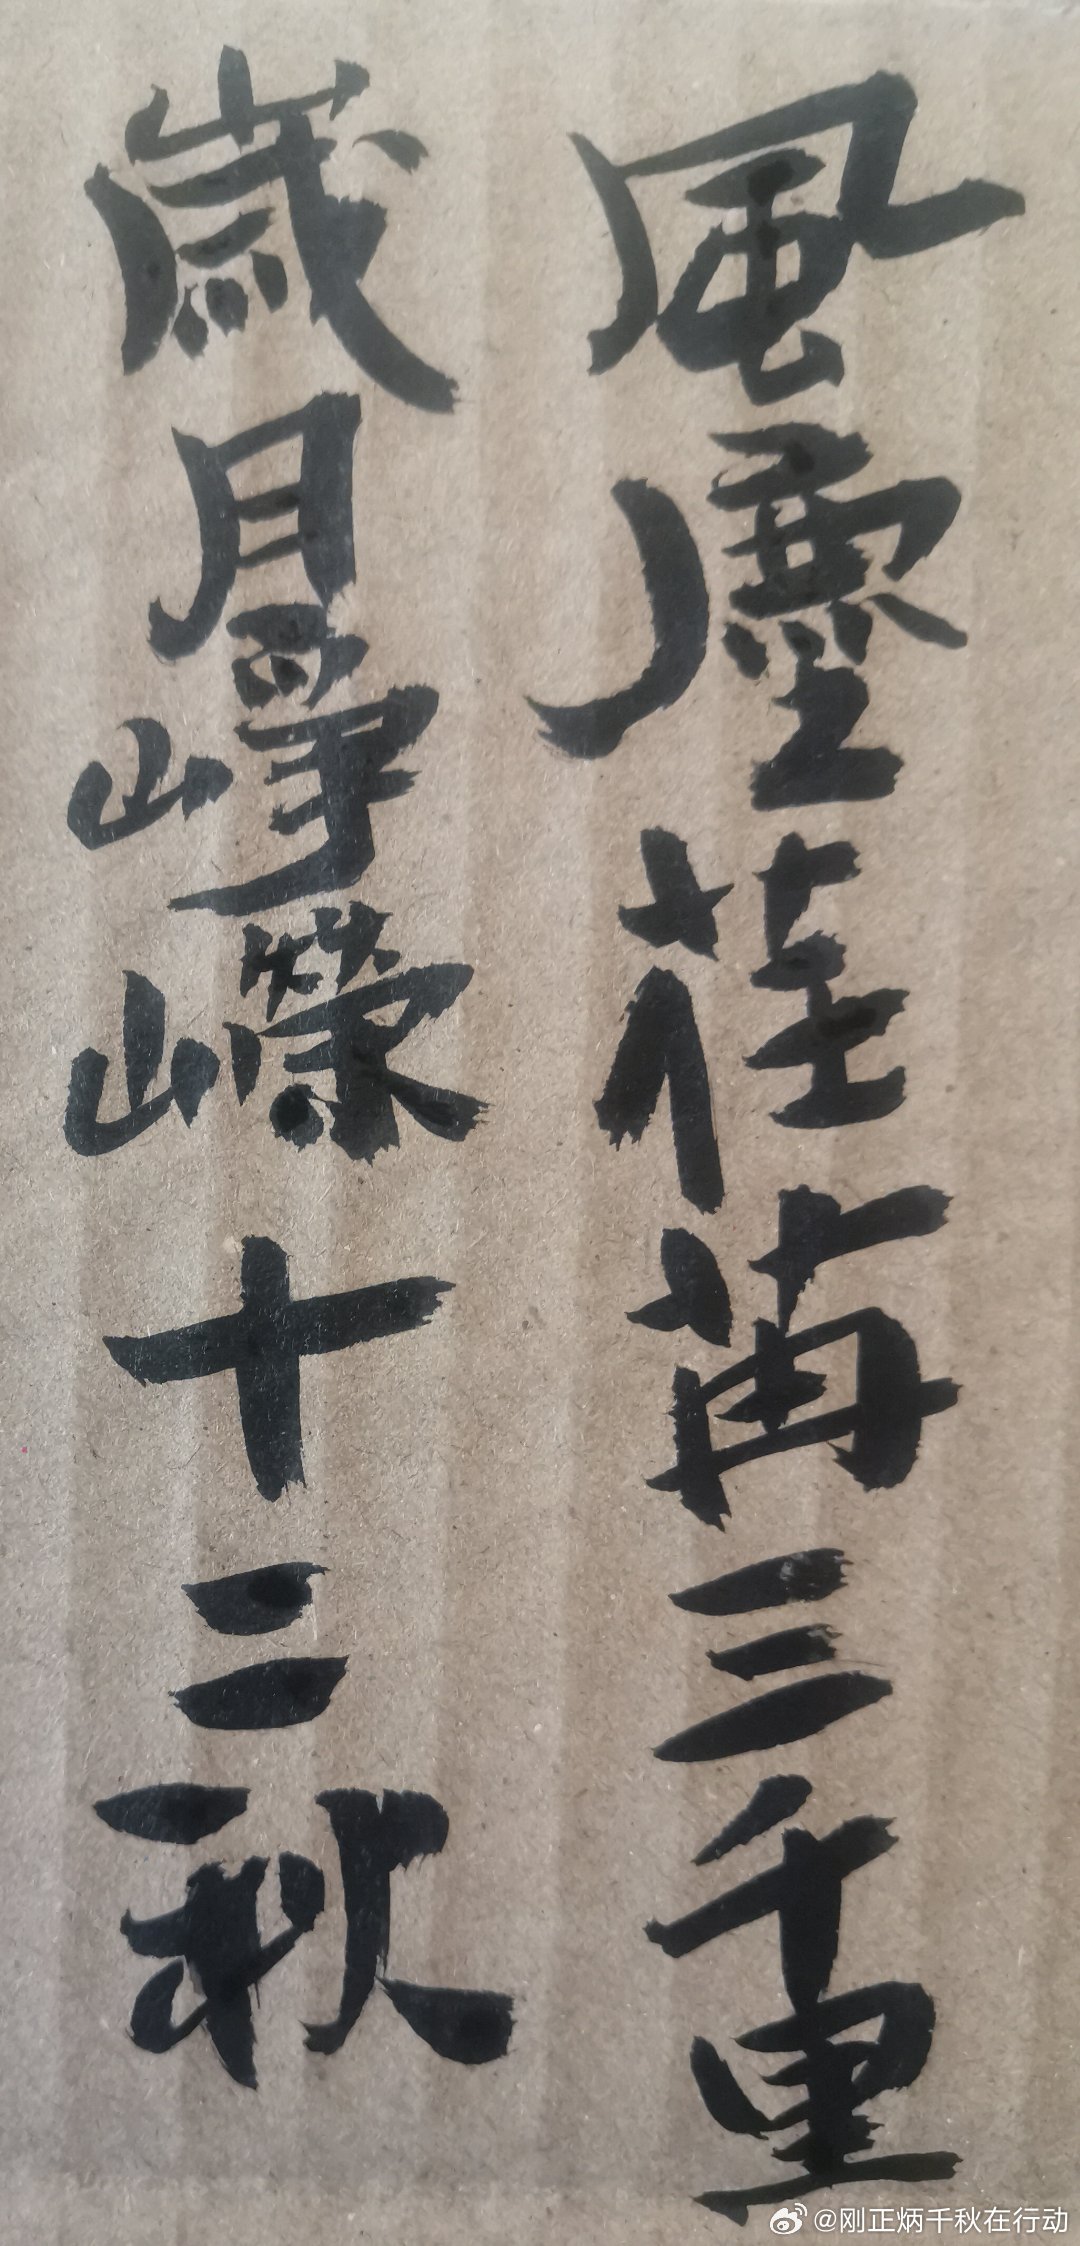 風塵荏苒三千里
歲月崢嶸十二秋
@刚正炳千秋在行动